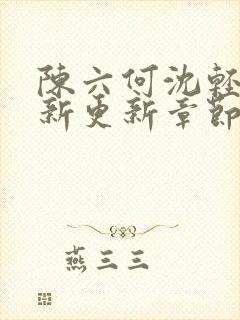 陳六何沈輕
新更新章節
燕三三